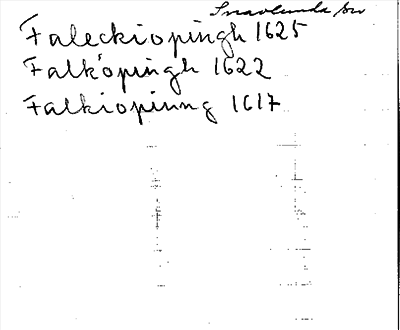 Snavlunda sn
Faleckiopingh 1625
Falköpingh 1622
Falkiopinng 1617